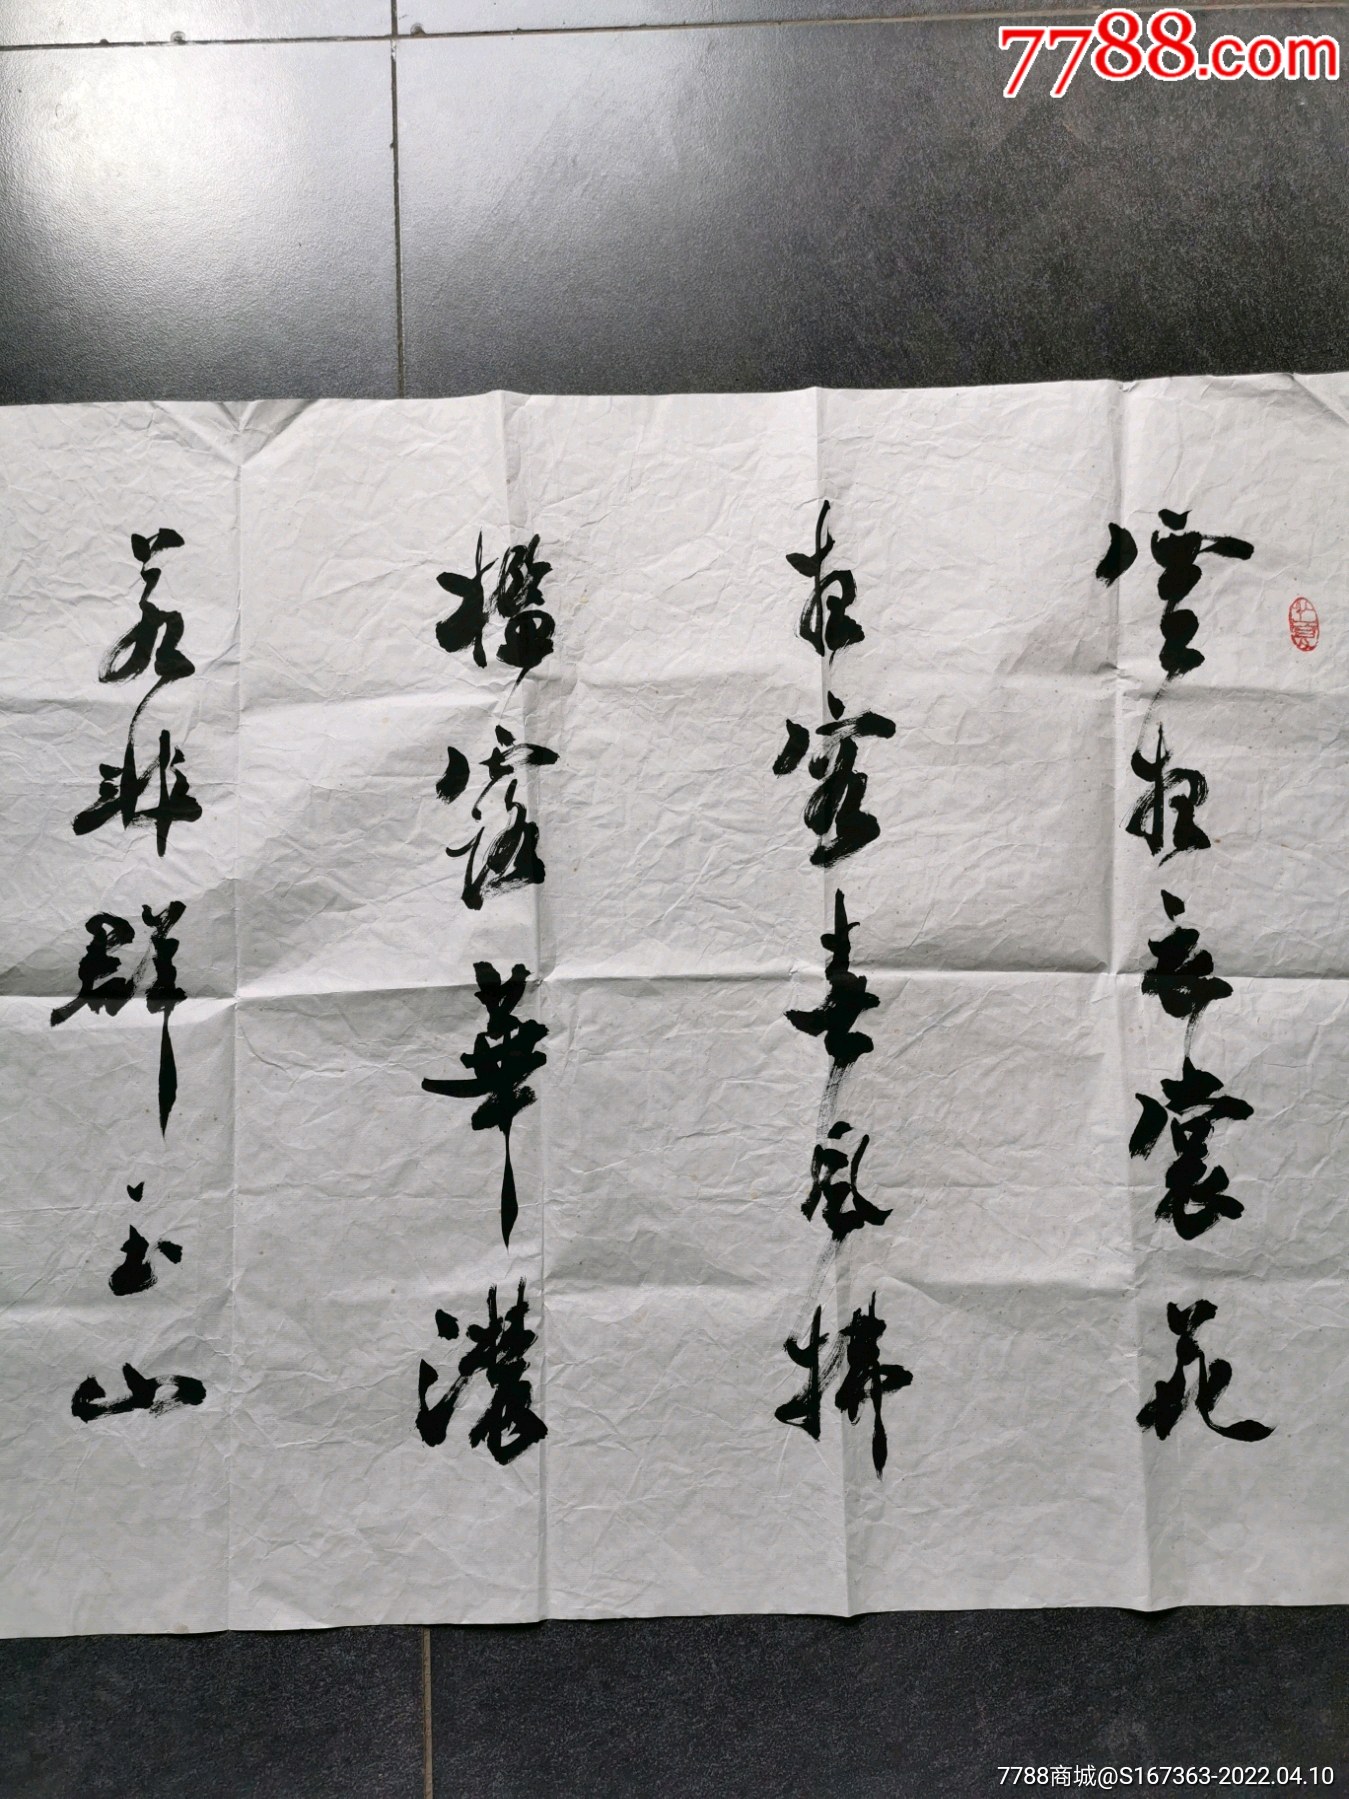 7788.com
雲想衣裳花
想容春風拂
檻露華濃
若非群玉山
7788商城@S167363-2022.04.10